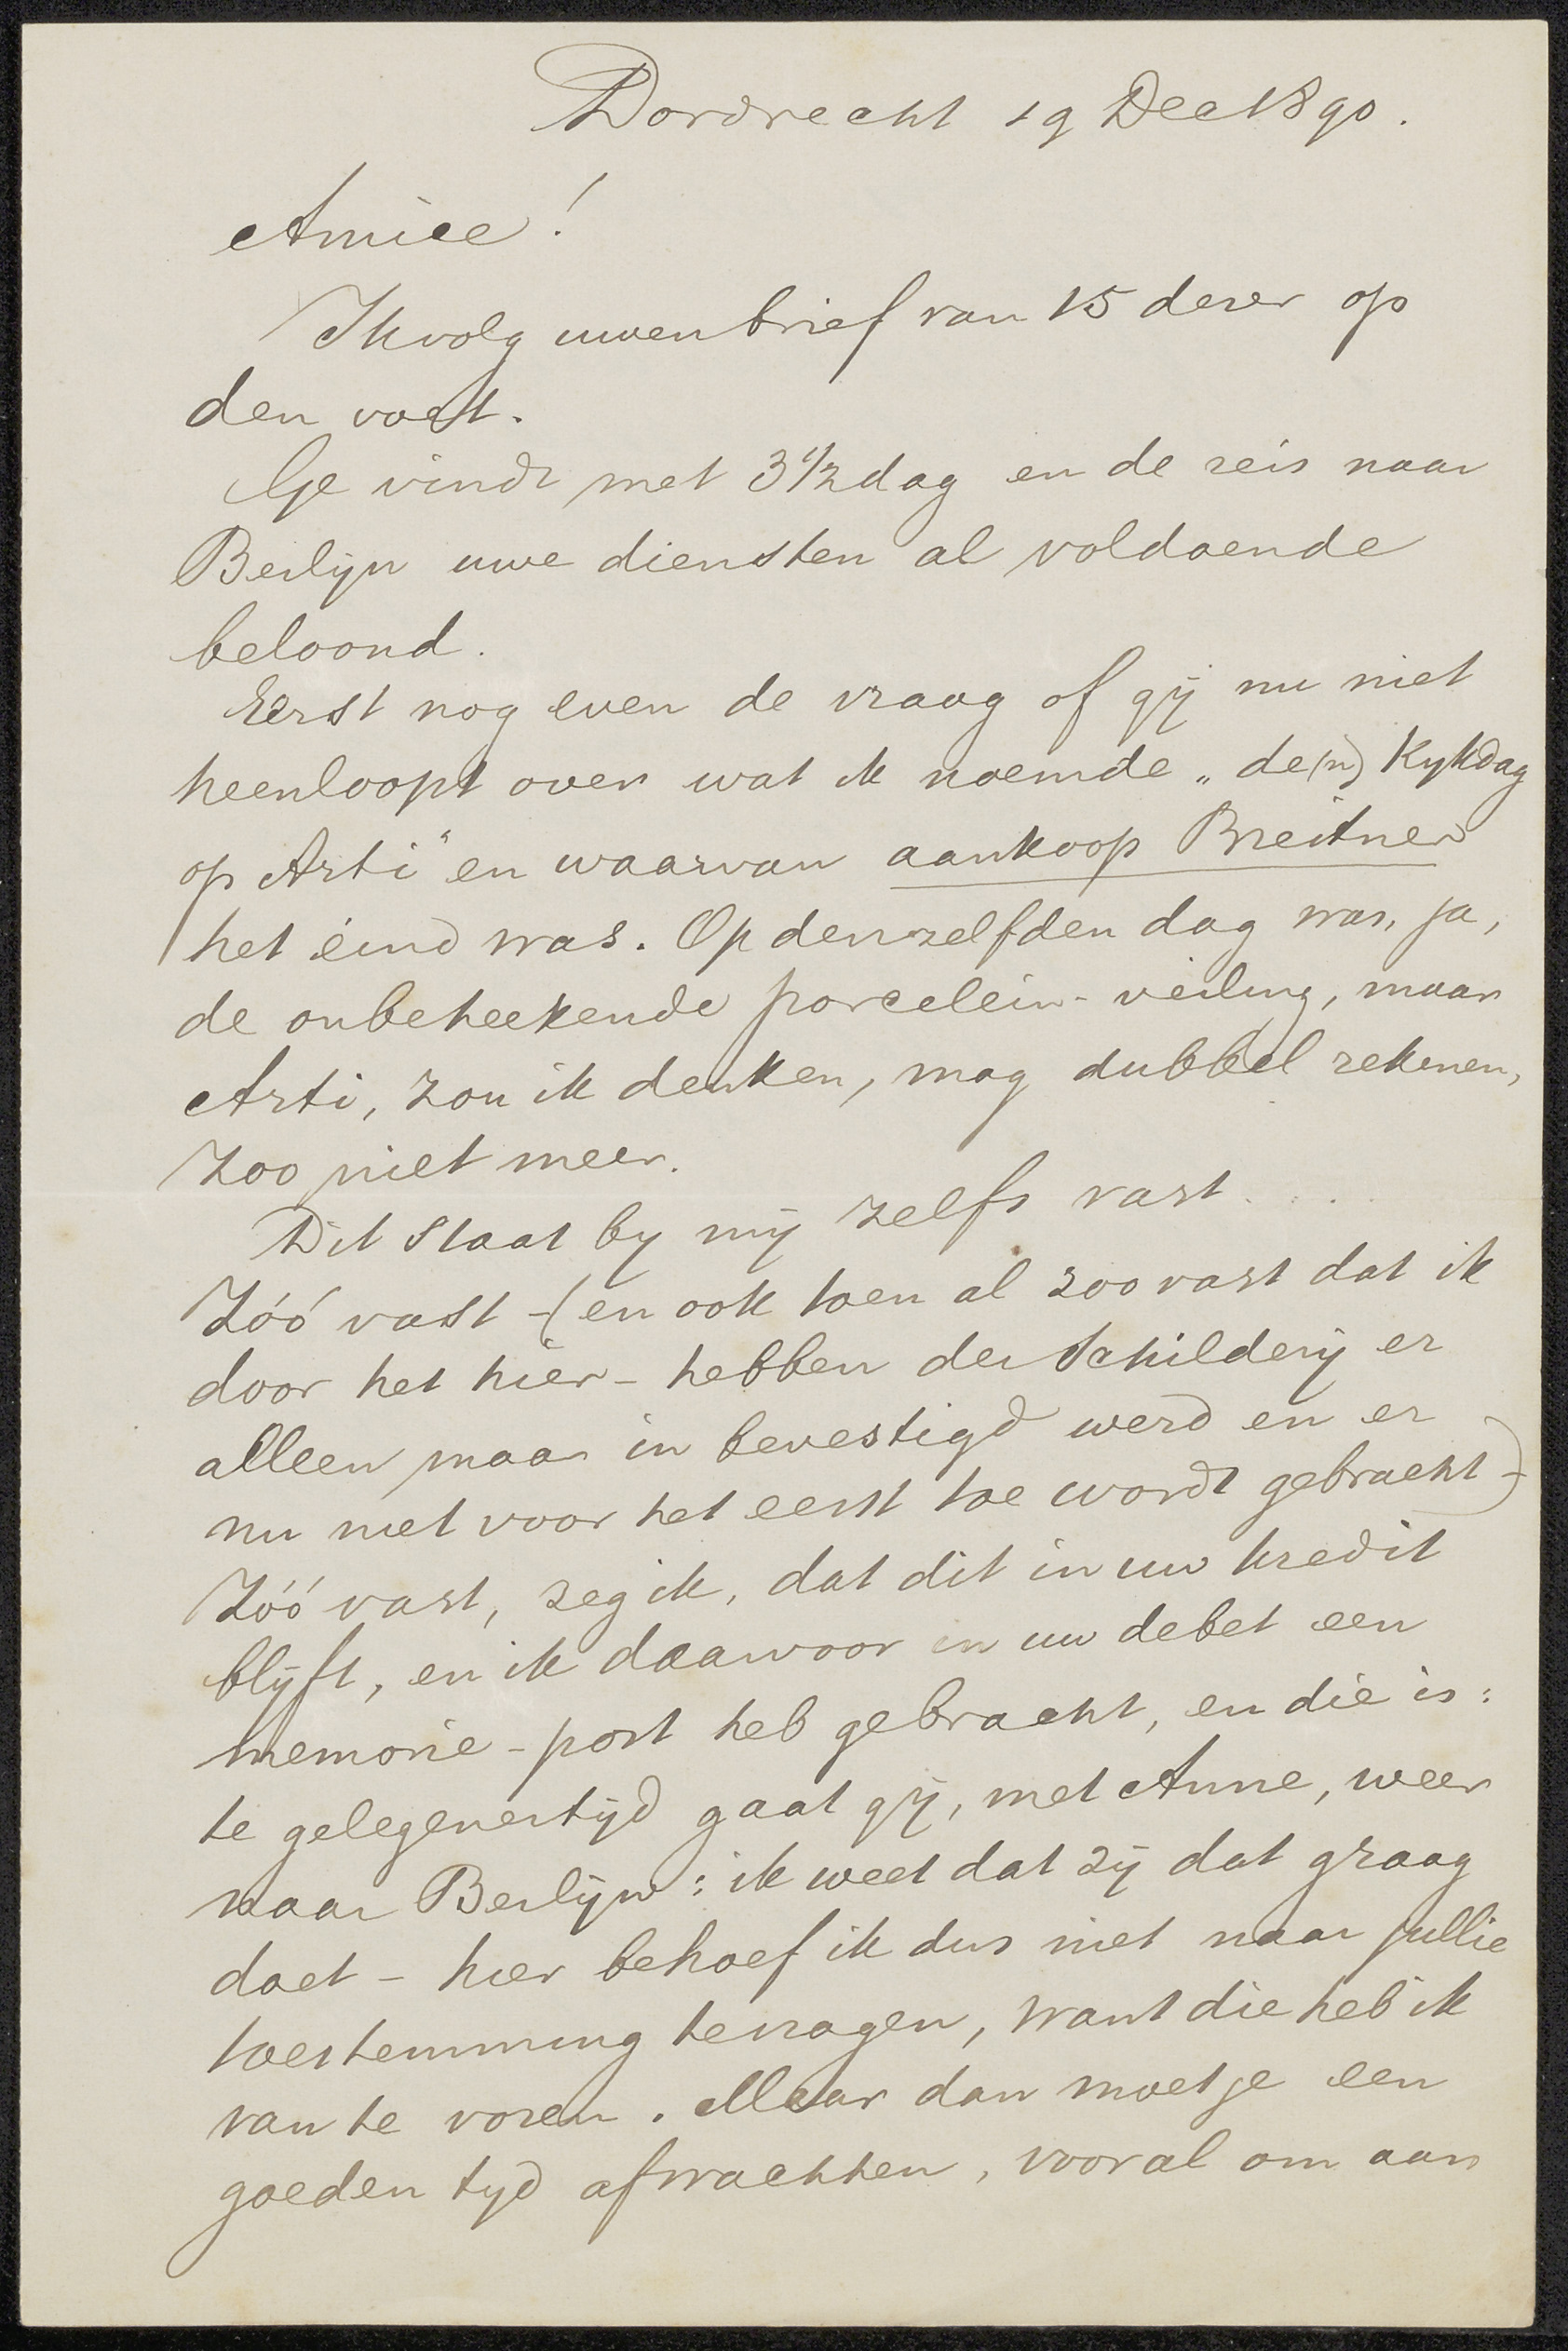 Dordrecht 19 Dec 1890.
Amice!
Ik volg uwen brief van 15 dezer op
den voet.
Ge vindt met 3 1/2 dag en de reis naar
Berlijn uwe diensten al voldoende
beloond.
Eerst nog even de vraag of gij nu niet
heenloopt over wat ik noemde „de(n) Kykdag
op Arti" en waarvan aankoop Breitner
het eind was. Op denzelfden dag was, ja,
de onbeteekende porcelein-veiling, maar
Arti, zou ik denken, mag dubbel rekenen,
zoo niet meer.
Dit staat by mij zelfs vast....
Zóó vast -(en ook toen al zoo vast dat ik
door het hier-hebben der Schildery er
alleen maar in bevestigd werd en er
nu niet voor het eerst toe wordt gebracht)-
Zóó vast, zeg ik, dat dit in uw kredit
blijft, en ik daarvoor in uw debet een
memorie-post heb gebracht, en die is:
te gelegenertijd gaat gij, met Anne, weer
naar Berlijn: ik weet dat zij dat graag
doet - hier behoef ik dus niet naar jullie
toestemming te vragen, want die heb ik
van te voren. Maar dan moet je een
goeden tyd afwachten, vooral om aan